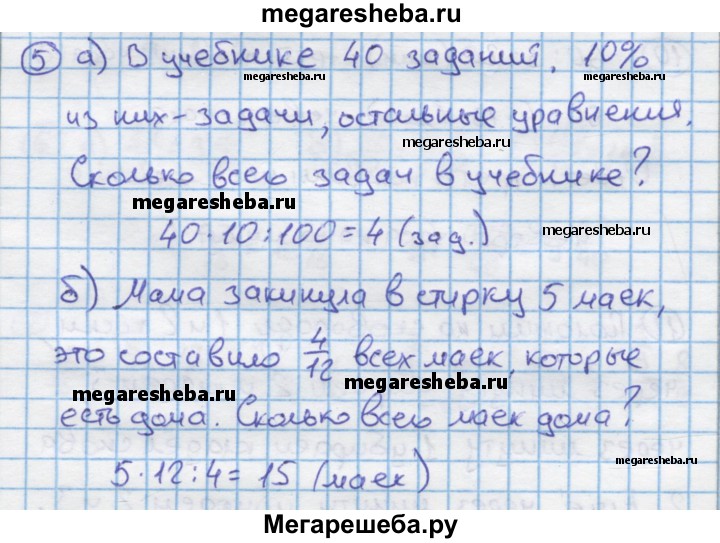 megaresheba.ru
5 а) В учебнике 40 заданий, 10%
megaresheba.ru megaresheba.ru
из них - задачи, остальные уравнения.
megaresheba.ru
Сколько всего задач в учебнике?
megaresheba.ru
40·10:100=4 (зад.) megaresheba.ru
б) Мама закинула в стирку 5 маек,
это составило 4/12 всех маек, которые
megaresheba.ru megaresheba.ru
есть дома. Сколько всего маек дома?
5·12:4=15 (маек)
megaresheba.ru
Мегарешеба.ру